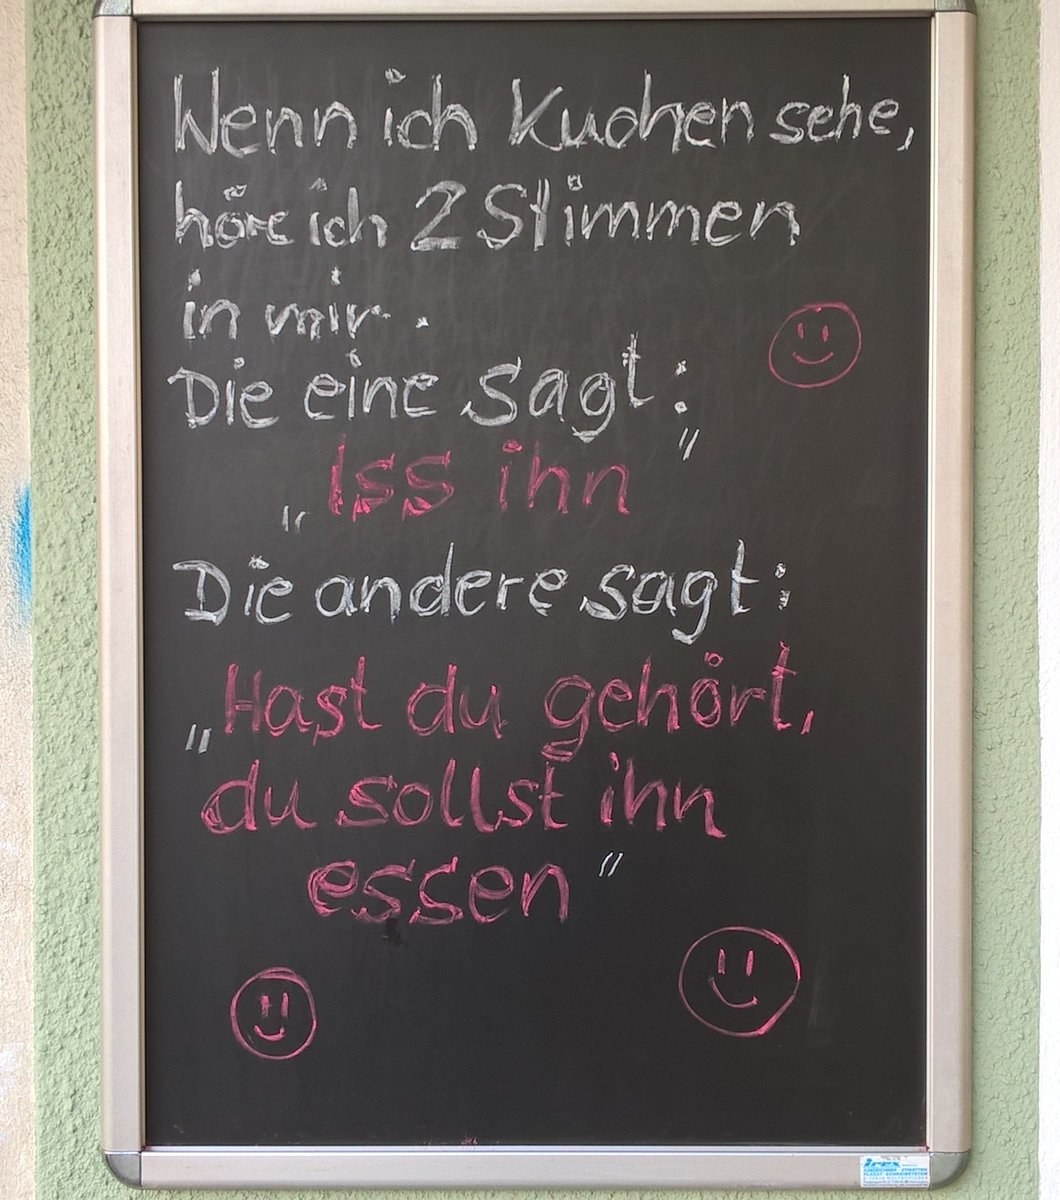 Wenn ich Kuchen sehe,
höre ich 2 Stimmen
in mir.
Die eine sagt:
„Iss ihn"
Die andere sagt:
„Hast du gehört,
du sollst ihn
essen"